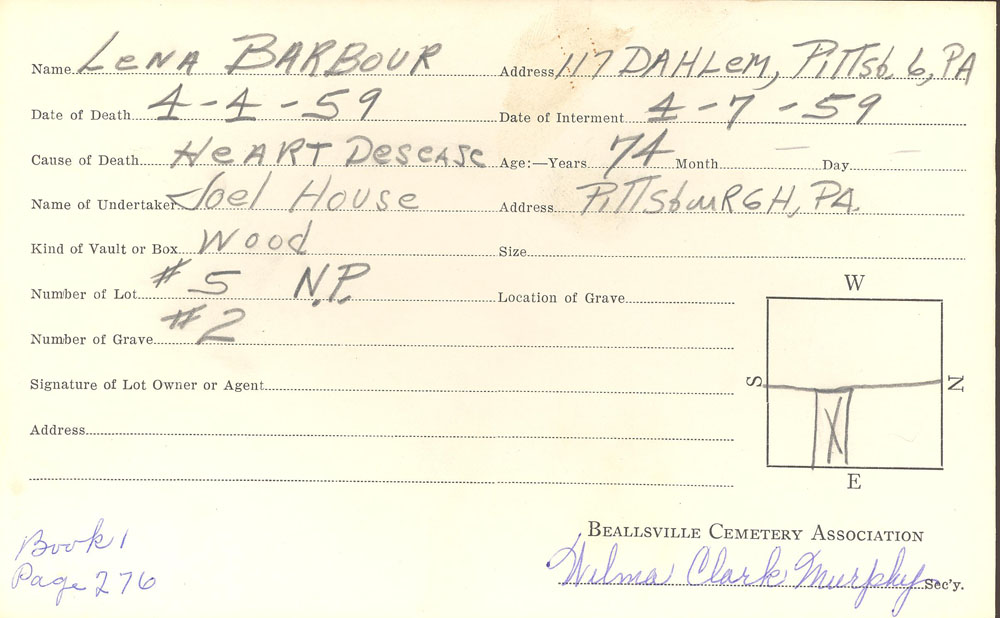 Name Lena Barbour Address 117 Dahlem, Pittsb. 6, PA
Date of Death 4-4-59 Date of Interment 4-7-59
Cause of Death Heart Desease Age:—Years 74 Month — Day —
Name of Undertaker Joel House Address Pittsburgh, PA.
Kind of Vault or Box Wood Size
Number of Lot #5 N.P. Location of Grave
Number of Grave #2
Signature of Lot Owner or Agent
Address
W
S N
X
E
Beallsville Cemetery Association
Wilma Clark Murphy Sec'y.
Book 1
Page 276